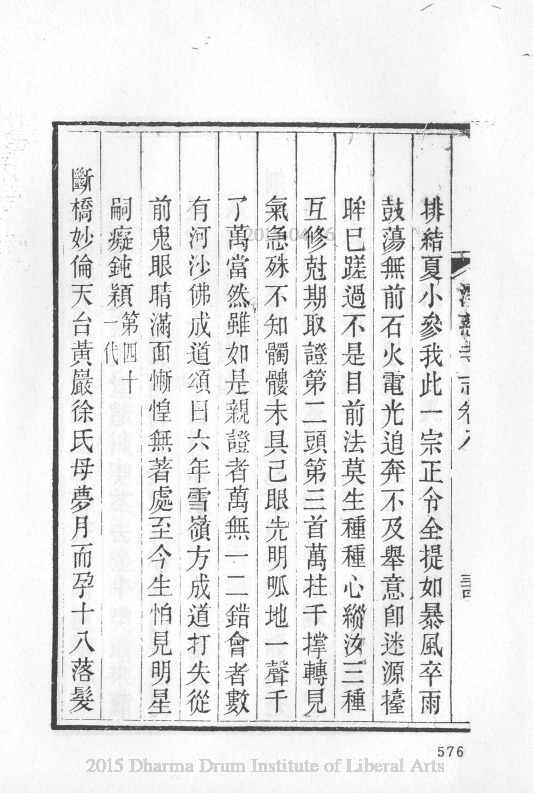 排結夏小參我此一宗正令全提如暴風卒雨
鼓蕩無前石火電光追奔不及舉意卽迷源擡
眸已蹉過不是目前法莫生種種心縱汝三種
互修尅期取證第二頭第三首萬拄千撐轉見
氣急殊不知髑髏未具己眼先明㘞地一聲千
了萬當然雖如是親證者萬無一二錯會者數
有河沙佛成道頌曰六年雪嶺方成道打失從
前鬼眼睛滿面慚惶無著處至今生怕見明星
嗣癡鈍穎第四十一代
斷橋妙倫天台黃巖徐氏母夢月而孕十八落髮
576
2015 Dharma Drum Institute of Liberal Arts